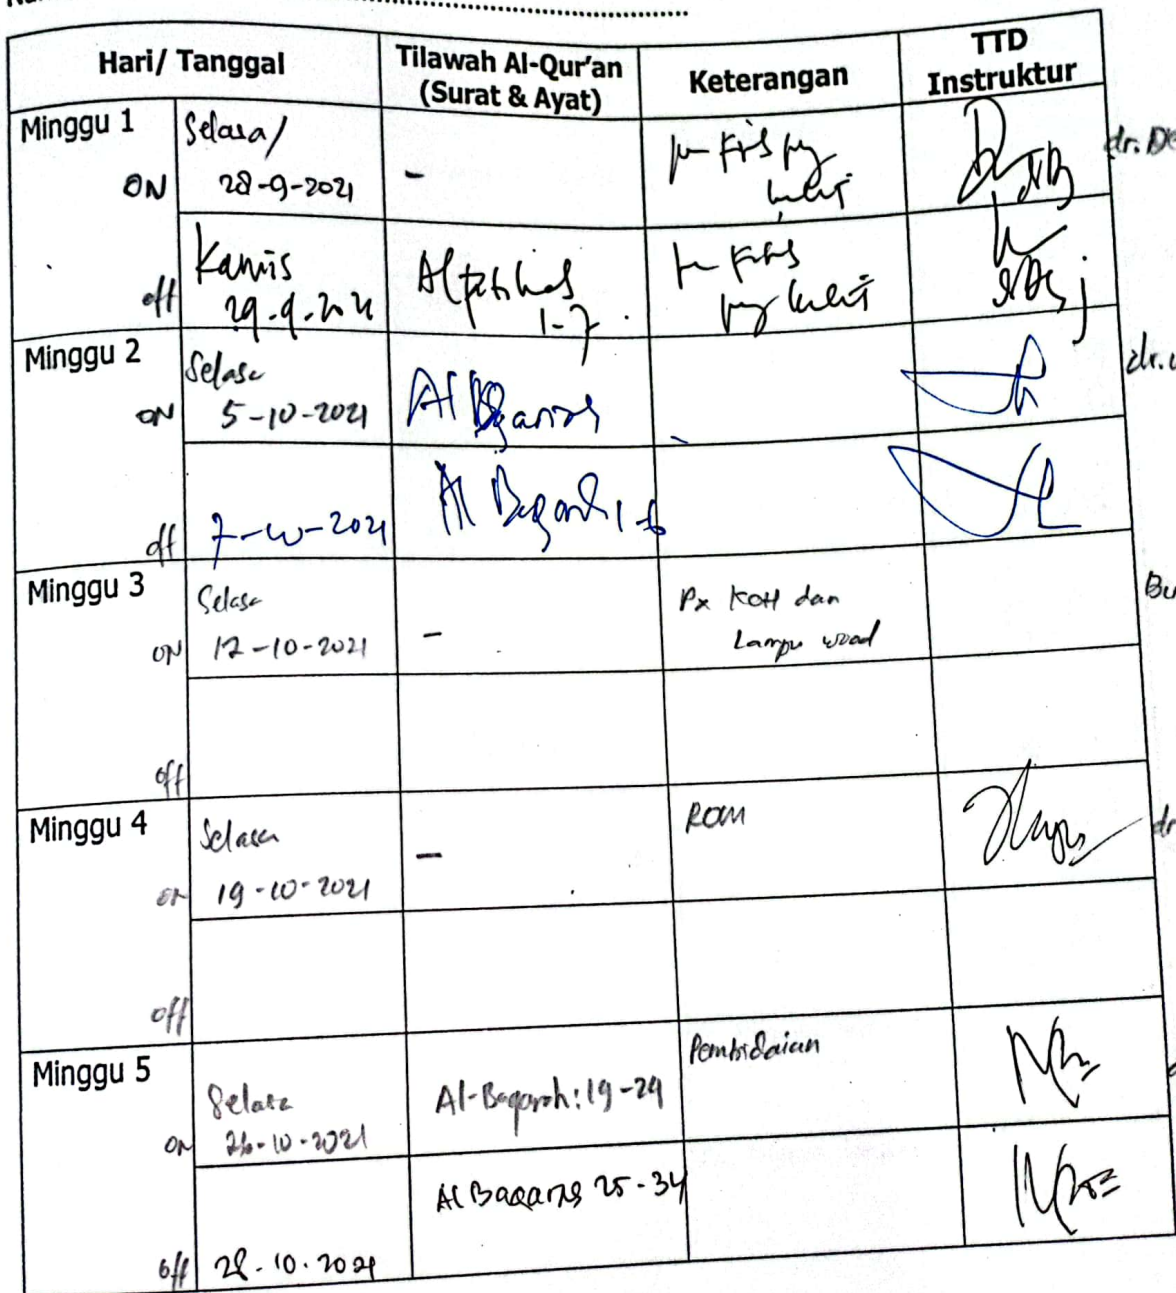 Hari/ Tanggal
Tilawah Al-Qur'an
(Surat & Ayat)
Keterangan
TTD
Instruktur
Minggu 1
ON
Selasa/
28-9-2021
-
dr.
off
Kamis
29.9.2021
1-7
Minggu 2
ON
Selasa
5-10-2021
dr.
off
7-10-2021
Al Baqarah 1-6
Minggu 3
ON
Selasa
12-10-2021
-
Px KOH dan
Lampu wood
Bu
off
Minggu 4
on
Selasa
19-10-2021
-
ROM
dr
off
Minggu 5
on
Selasa
26-10-2021
Al-Baqarah: 19-24
Pembidaian
off
28.10.2021
Al Baqarah 25-34